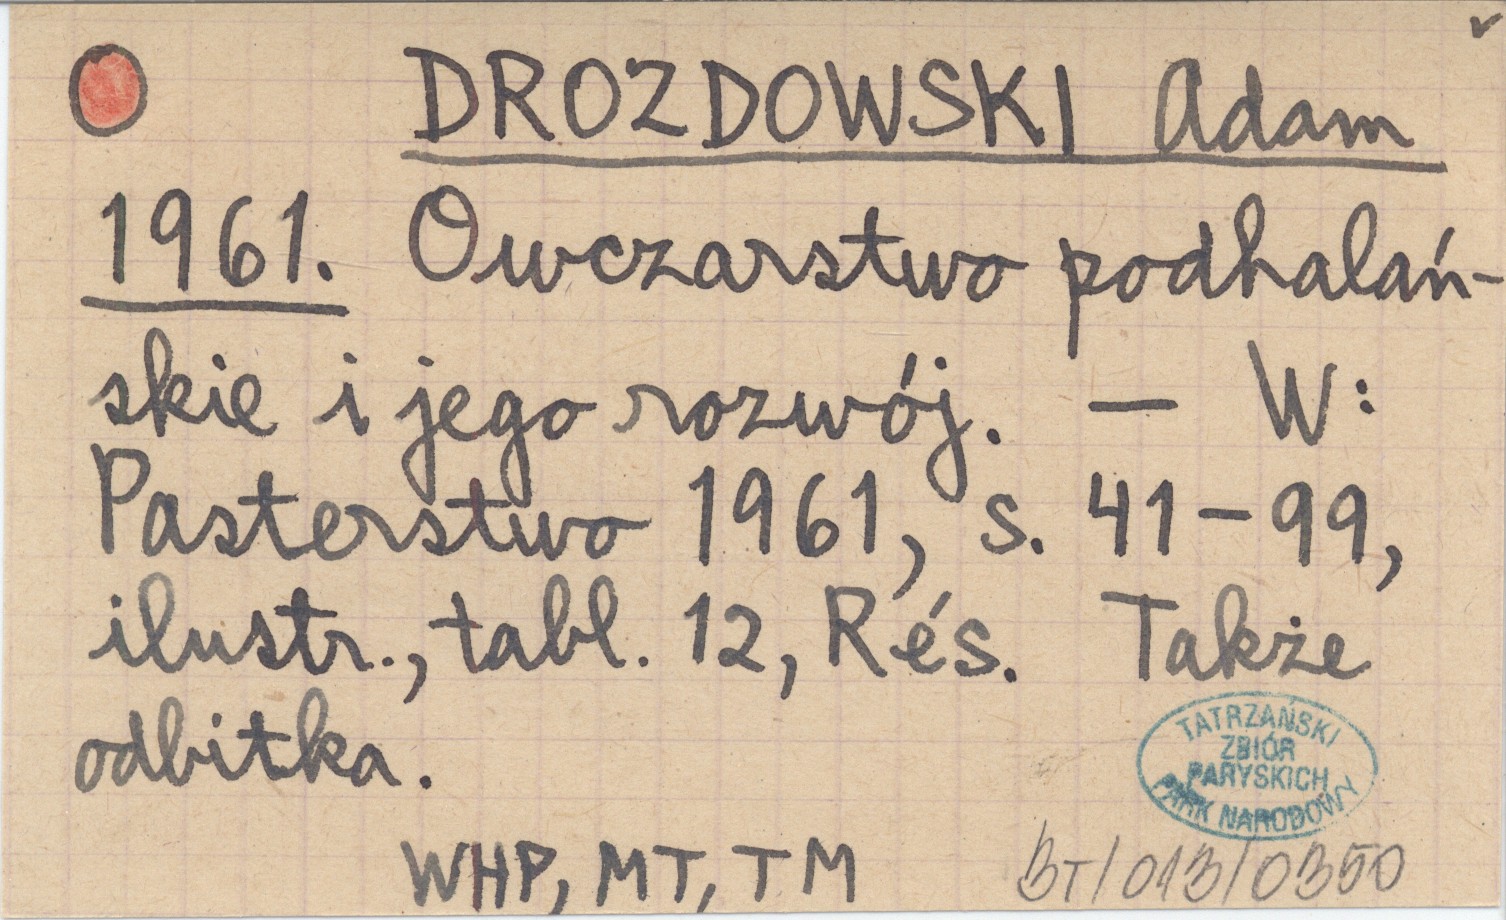 DROZDOWSKI Adam
1961. Owczarstwo podhalań-
skie i jego rozwój. — W:
Pasterstwo 1961, s. 41-99,
ilustr., tabl. 12, Rés. Także
odbitka.
TATRZAŃSKI
ZBIÓR
PARYSKICH
PARK NARODOWY
WHP, MT, TM
BT/013/0350